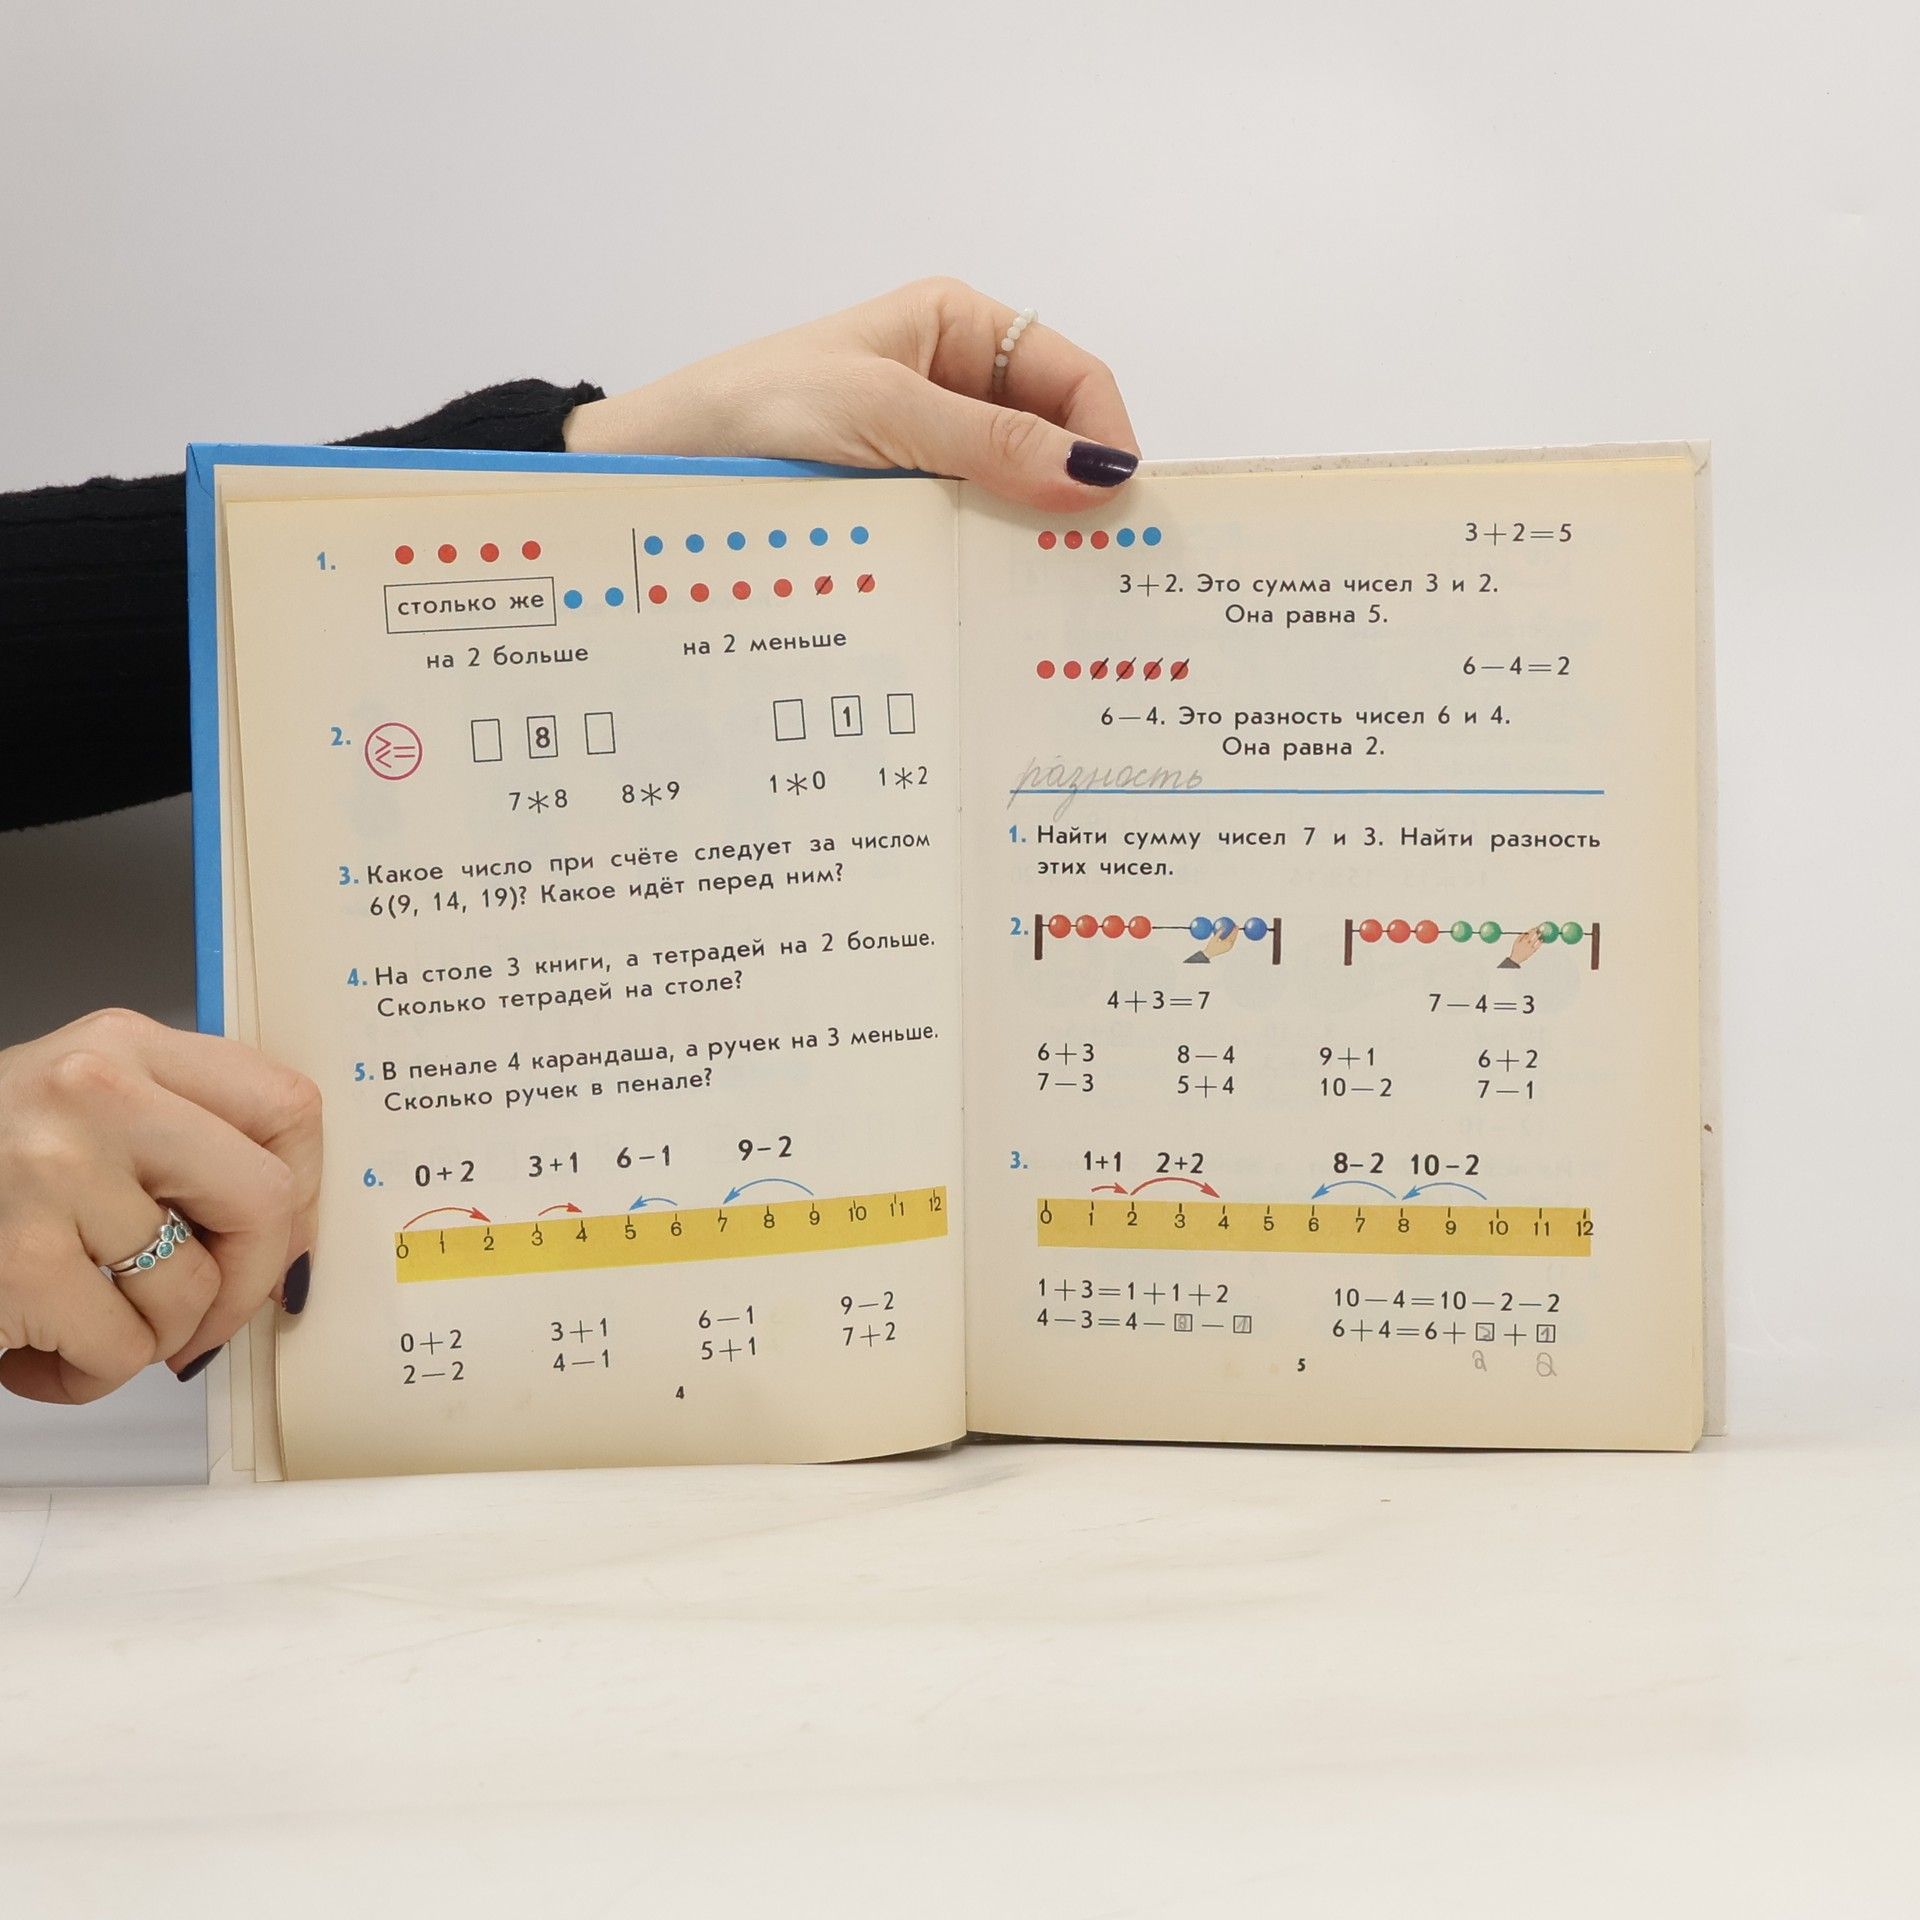 1.
столько же
на 2 больше
на 2 меньше
2. ≥≤= 8 1
7*8 8*9 1*0 1*2
3. Какое число при счёте следует за числом
6(9, 14, 19)? Какое идёт перед ним?
4. На столе 3 книги, а тетрадей на 2 больше.
Сколько тетрадей на столе?
5. В пенале 4 карандаша, а ручек на 3 меньше.
Сколько ручек в пенале?
6. 0+2 3+1 6−1 9−2
0 1 2 3 4 5 6 7 8 9 10 11 12
0+2 3+1 6−1 9−2
2−2 4−1 5+1 7+2
4
3+2=5
3+2. Это сумма чисел 3 и 2.
Она равна 5.
6−4=2
6−4. Это разность чисел 6 и 4.
Она равна 2.
разность
1. Найти сумму чисел 7 и 3. Найти разность
этих чисел.
2.
4+3=7 7−4=3
6+3 8−4 9+1 6+2
7−3 5+4 10−2 7−1
3. 1+1 2+2 8−2 10−2
0 1 2 3 4 5 6 7 8 9 10 11 12
1+3=1+1+2 10−4=10−2−2
4−3=4−□−□ 6+4=6+□+□
2 2
5